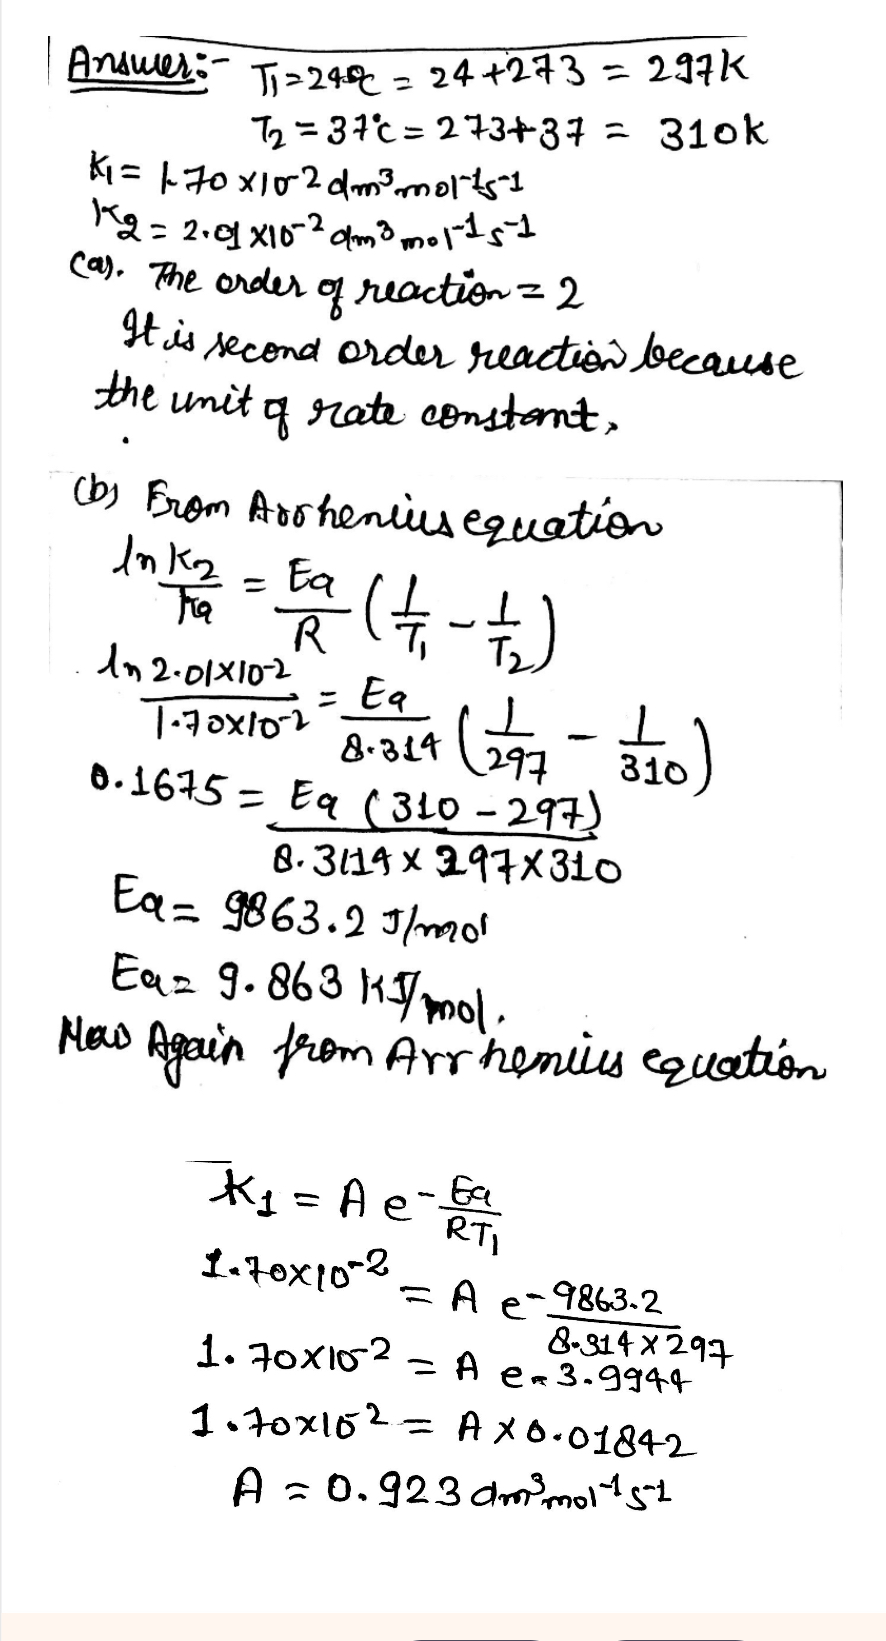 Answer:- T₁=24°C = 24+273 = 297K
T₂ = 37°C = 273+37 = 310K
K₁ = 1.70 x10⁻² dm³mol⁻¹s⁻¹
K₂ = 2.01 x10⁻² dm³ mol⁻¹ s⁻¹
(a). The order of reaction = 2
It is second order reaction because
the unit of rate constant.
(b) From Arrhenius equation
ln K₂/K₁ = Ea/R (1/T₁ - 1/T₂)
ln 2.01x10⁻²/1.70x10⁻² = Ea/8.314 (1/297 - 1/310)
0.1675 = Ea (310 - 297)/8.314 x 297x310
Ea = 9863.2 J/mol
Ea = 9.863 KJ/mol.
Now Again from Arrhenius equation
K₁ = A e - Ea/RT₁
1.70x10⁻² = A e - 9863.2/8.314 x 297
1.70x10⁻² = A e - 3.9944
1.70x10⁻² = A x 0.01842
A = 0.923 dm³mol⁻¹s⁻¹